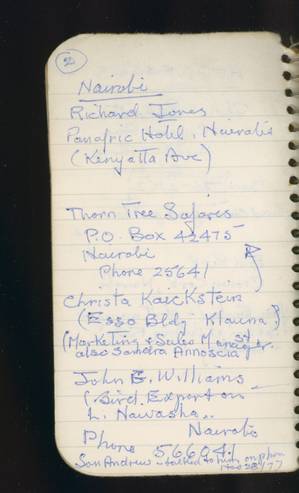 2
Nairobi
Richard Jones
Panafric Hotel, Nairobi
(Kenyatta Ave)
Thorn Tree Safaris
P.O. Box 42475
Nairobi
Phone 25641
Christa
(Esso Bldg
(Marketing & Sales Manager
also Sandra Annoscia
John E. Williams
(Bird Expert on
L. Naivasha
Nairobi
Phone 566041
Son Andrew - talked to him on phone
Nov 28/77